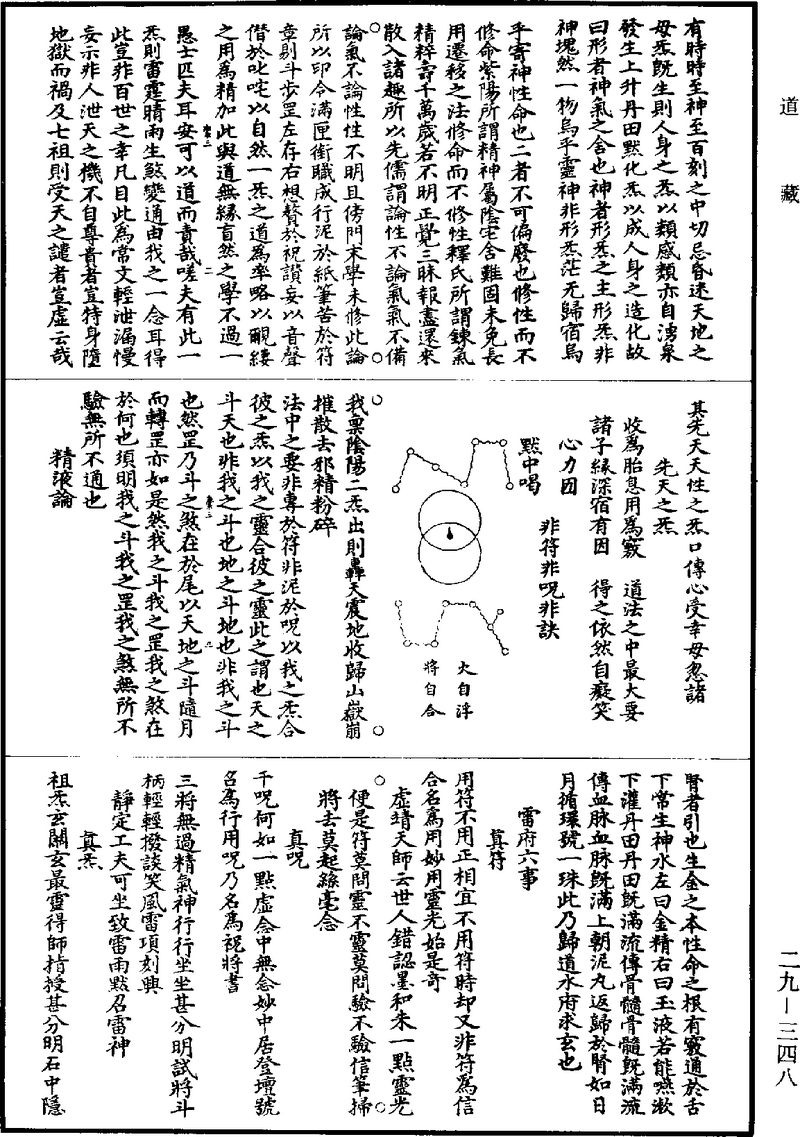 道藏
有時時至神至百刻之中切忌昏迷天地之
母炁既生則人身之炁以類感類亦自湧泉
發生上升丹田默化炁以成人身之造化故
曰形者神氣之舍也神者形炁之主形炁非
神塊然一物烏乎靈神非形炁茫无歸宿烏
乎寄神性命也二者不可偏廢也修性而不
修命紫陽所謂精神屬陰宅舍難固未免長
用遷移之法修命而不修性釋氏所謂鍊氣
精粹壽千萬歲若不明正覺三昧報盡還來
散入諸趣所以先儒謂論性不論氣氣不備
論氣不論性性不明且傍門末學未修此論
所以印令滿匣銜職成行泥於紙筆苦於符
章剔斗步罡左存右想贅於祝讚妄以音聲
僭於叱咤以自然一炁之道為率略以覼縷
之用為精加此與道無緣盲然之學不過一
愚士匹夫耳安可以道而責哉嗟夫有此一
炁則雷霆晴雨生煞變通由我之一念耳得
此豈非百世之幸凡目此為常文輕泄漏慢
妄示非人泄天之機不自尊貴者豈特身墮
地獄而禍及七祖則受天之譴者豈虛云哉
其先天天性之炁口傳心受幸毋忽諸
先天之炁
收為胎息用為竅　道法之中最大要
諸子緣深宿有因　得之依然自癡笑
心力因
非符非呪非訣
默中喝
大自浮
將自合
我稟陰陽二炁出則轟天震地收歸山嶽崩
摧散去邪精粉碎
法中之要非專於符非泥於呪以我之炁合
彼之炁以我之靈合彼之靈此之謂也天之
斗天也非我之斗也地之斗地也非我之斗
也然罡乃斗之煞在於尾以天地之斗隨月
而轉罡亦如是然我之斗我之罡我之煞在
於何也須明我之斗我之罡我之煞無所不
驗無所不通也
精液論
腎者引也生金之本性命之根有竅通於舌
下常生神水左曰金精右曰玉液若能嚥漱
下灌丹田丹田既滿流傳骨髓骨髓既滿流
傳血脉血脉既滿上朝泥丸返歸於腎如日
月循環號一珠此乃歸道水府求玄也
雷府六事
真符
用符不用正相宜不用符時却又非符為信
合名為用妙用靈光始是奇
虛靖天師云世人錯認墨和朱一點靈光
便是符莫問靈不靈莫問驗不驗信筆掃
將去莫起絲毫念
真呪
千呪何如一點虛念中無念妙中居登壇號
召為行用呪乃名為祝將書
三將無過精氣神行行坐坐甚分明試將斗
柄輕輕撥談笑風雷頃刻興
靜定工夫可坐致雷雨默召雷神
真炁
祖炁玄關玄最靈得師指授甚分明石中隱
二九—三四八